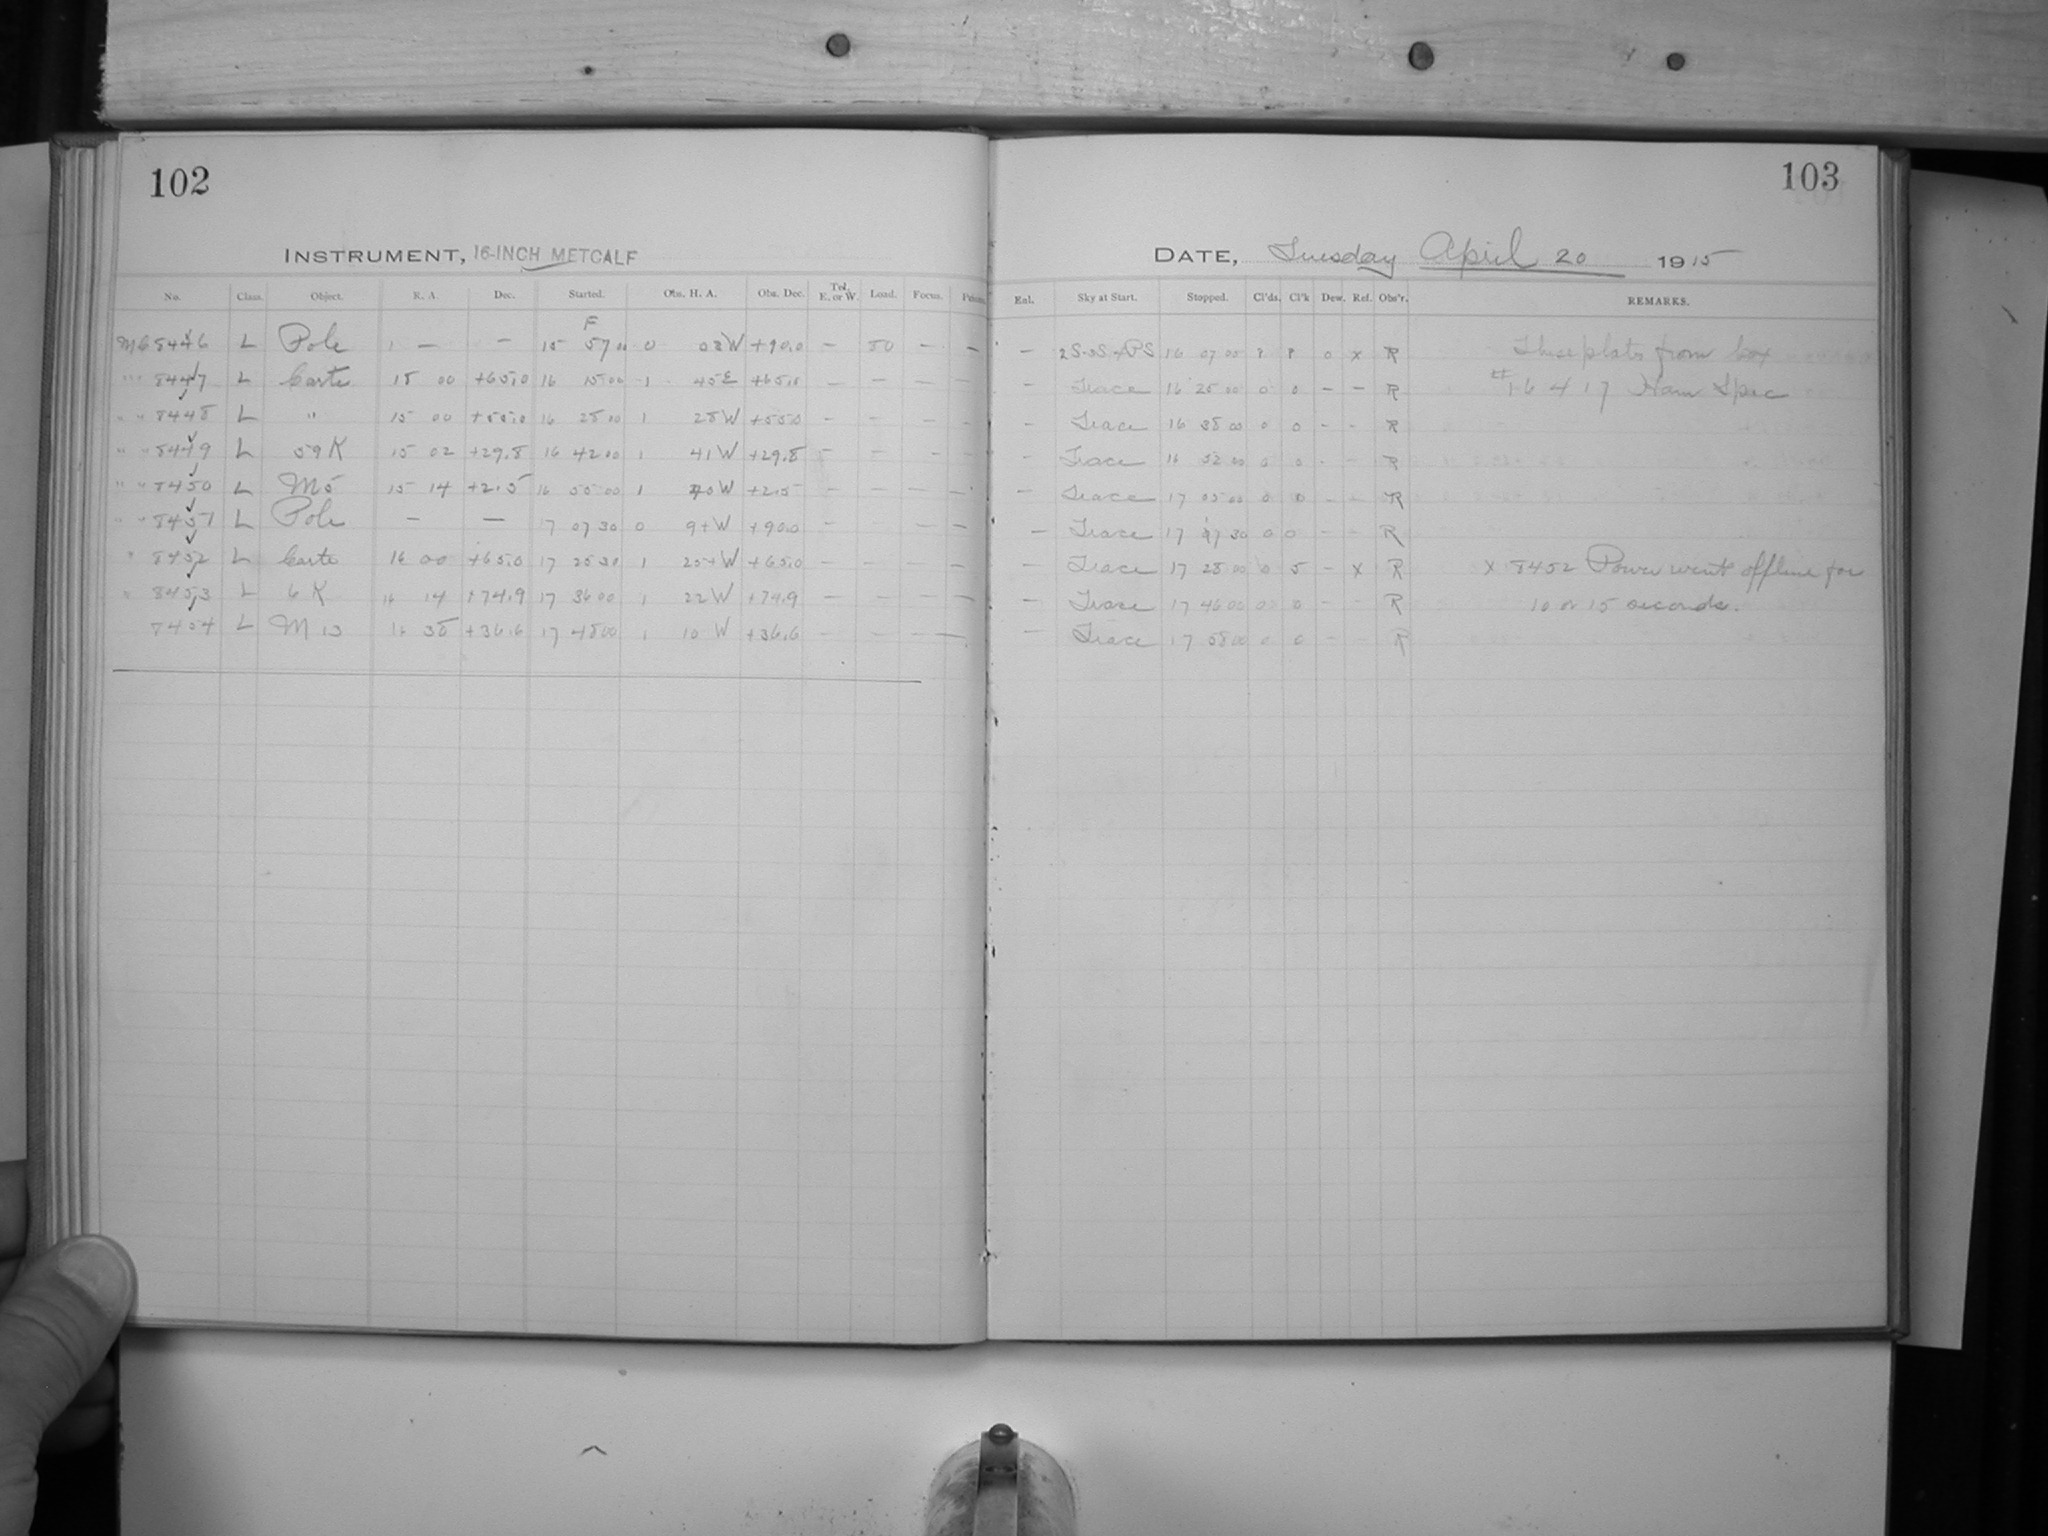 102
INSTRUMENT, 16-INCH METCALF
No. Class. Object. R. A. Dec. Started. Obs. H. A. Obs. Dec. Tel. E. or W. Load. Focus.
F
MC 8446 L Pole — — 15 57 00 0 03 W +90.0 — 50 — —
" " 8447 L Carte 15 00 +65.0 16 15 00 1 45 E +65.0 — — — —
" " 8448 L " 15 00 +55.0 16 28 00 1 28 W +55.0 — — — —
" " 8449 L 59 K 15 02 +29.8 16 42 00 1 41 W +29.8 — — — —
" " 8450 L M5 15 14 +2.5 16 55 00 1 40 W +2.5 — — — —
" " 8451 L Pole — — 17 07 30 0 9+ W +90.0 — — —
" 8452 L Carte 16 00 +65.0 17 25 30 1 25+ W +65.0 — — — —
" 8453 L 6 K 16 14 +74.9 17 36 00 1 22 W +74.9 — — — —
8454 L M 13 16 38 +36.6 17 48 00 1 10 W +36.6 — — — —
103
DATE, Tuesday April 20 1915
Enl. Sky at Start. Stopped. Cl'ds. Cl'k Dew. Ref. Obs'r. REMARKS.
— 16 07 00 ? ? 0 x R These plates from box
— Trace 16 25 00 0 0 — — R # 16 4 17 Ham Spec
— Trace 16 38 00 0 0 — — R
— Trace 16 52 00 0 0 - — R
— Trace 17 05 00 0 0 — — R
— Trace 17 17 30 0 0 R
— Trace 17 28 00 0 5 — x R x 8452 Power went offline for
— Trace 17 46 00 0 0 — — R 10 or 15 seconds.
— Trace 17 58 00 0 0 — — R